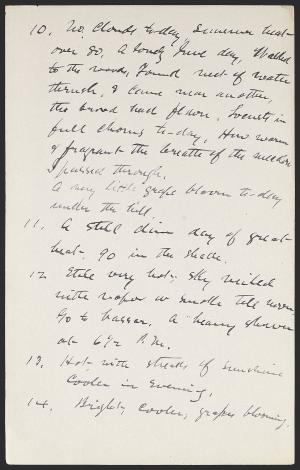 10. No clouds to-day, summer heat
over 80. A lovely June day, Walked
to the woods, Found nest of water
thrush, & came near another,
the brood had flown. Locusts in
full chorus to-day, How warm
& fragrant the breath of the
I passed through.
A very little grape bloom to-day
under the hill.
11. A still dim day of great
heat, 90 in the shade.
12 Still very hot, sky veiled
with vapor or smoke till noon
90 to
A heavy shower
at 6½ P.M.
13. Hot, with streaks of sunshine
Cooler in evening.
14. Bright, cooler, grapes blooming.